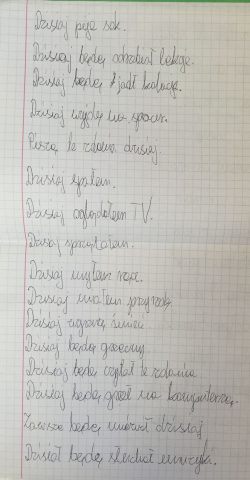 Dzisiaj piję sok.
Dzisiaj będę odrabiał lekcje.
Dzisiaj będę jadł kolację.
Dzisiaj wyjdę na spacer.
Piszę te zdania dzisiaj.
Dzisiaj spałem.
Dzisiaj oglądałem TV.
Dzisiaj sprzątałem.
Dzisiaj myłem ręce.
Dzisiaj miałem przyrodę.
Dzisiaj
Dzisiaj będę grzeczny.
Dzisiaj będę czytał te zdania.
Dzisiaj będę grał na komputerze.
Zawsze będę mówił dzisiaj
Dzisiaj będę słuchał muzyki.